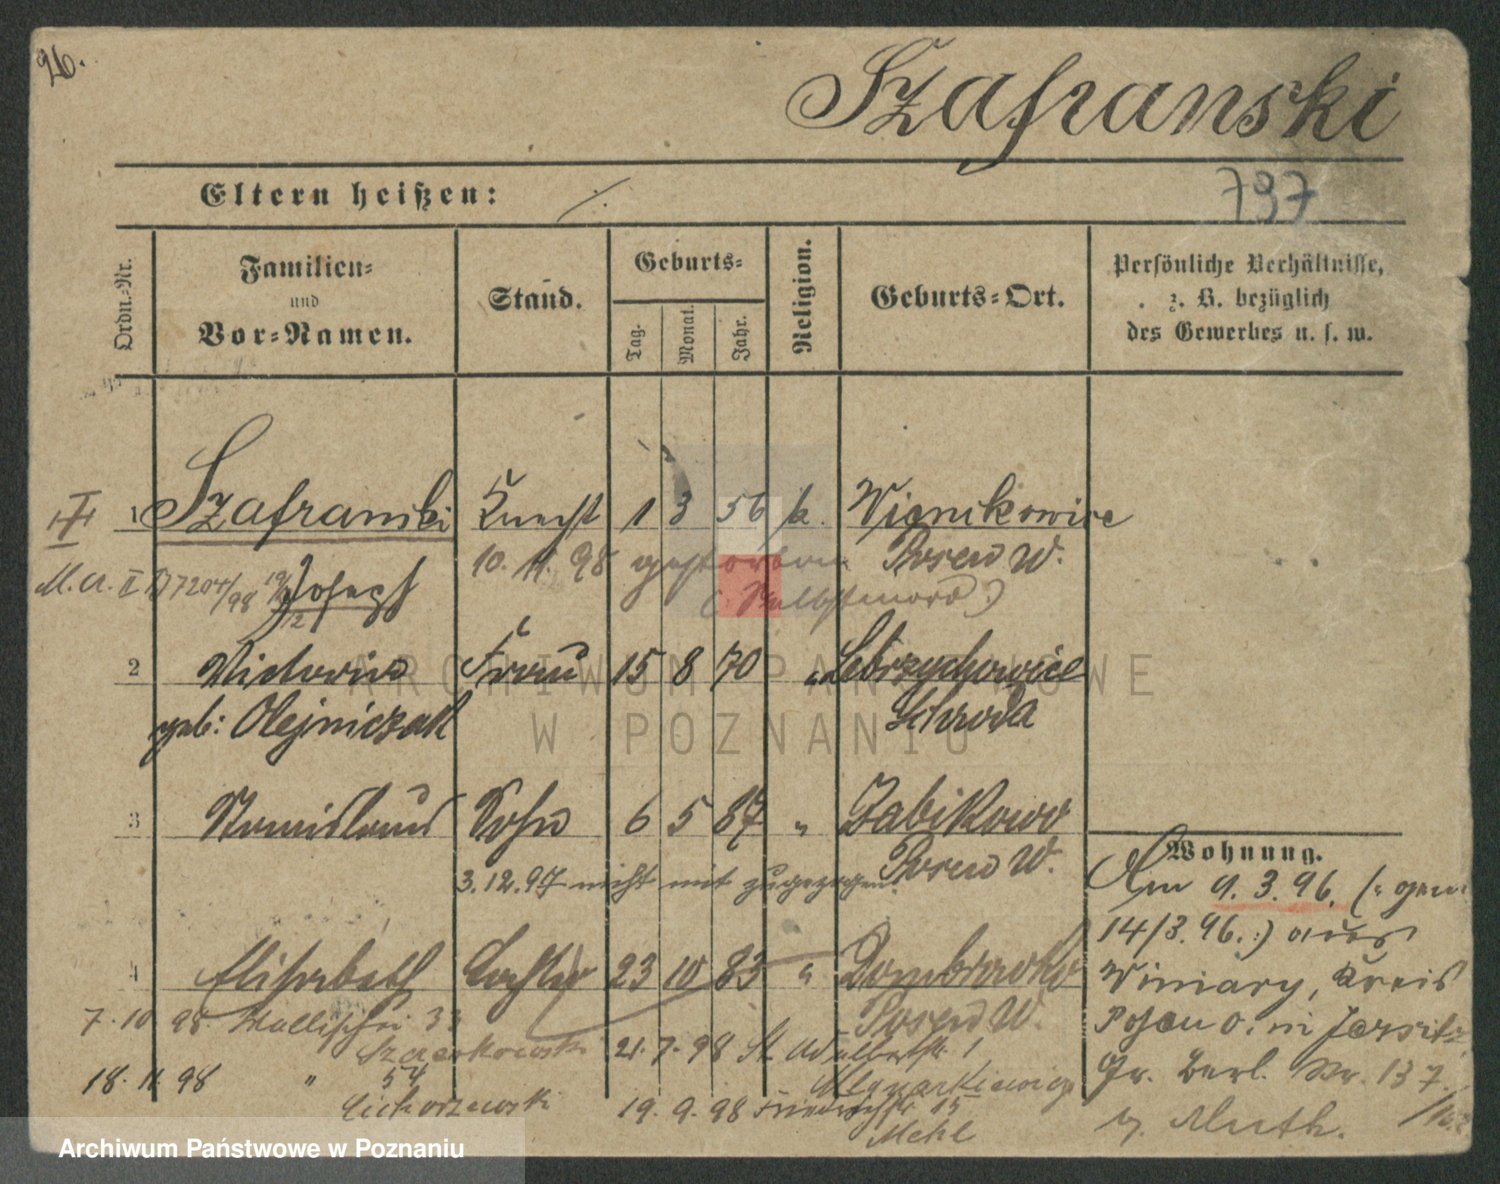 26.
Szafranski
Eltern heißen: ./.
797
Ordn.-Nr.
Familien-
und
Vor-Namen.
Stand.
Geburts-
Tag.
Monat.
Jahr.
Religion.
Geburts-Ort.
Persönliche Verhältnisse,
z. B. bezüglich
des Gewerbes u. s. w.
1 Szafranski Knecht 1 3 56 k.
10. 11. 98 gestorben Posen W.
M. A. II 7204/98 Josef
(Selbstmord)
2 Victoria Frau 15 8 70 "
geb: Olejniczak Schroda
3 Stanislaus Sohn 6 5 87 " Zabikowo
Posen W.
3. 12. 97 nicht mit zugezogen.
4 Elisabeth Tochter 23 10 83 " Dombrowko
Posen W.
7. 10 98 Wallischei 33
21. 7. 98 St. Adalbertstr. 1
Mlynarkiewicz
18. 11. 98 " 54
Cichorzewski
19. 9. 98 Friedrichstr. 15
Mehl
Wohnung.
Am 9. 3. 96. (: gem.
14/3. 96. :) aus
Winiary, Kreis
Posen O. in Jersitz,
Gr. Berl. Str. 137.
b. Muth.
ARCHIWUM PAŃSTWOWE
W POZNANIU
Archiwum Państwowe w Poznaniu